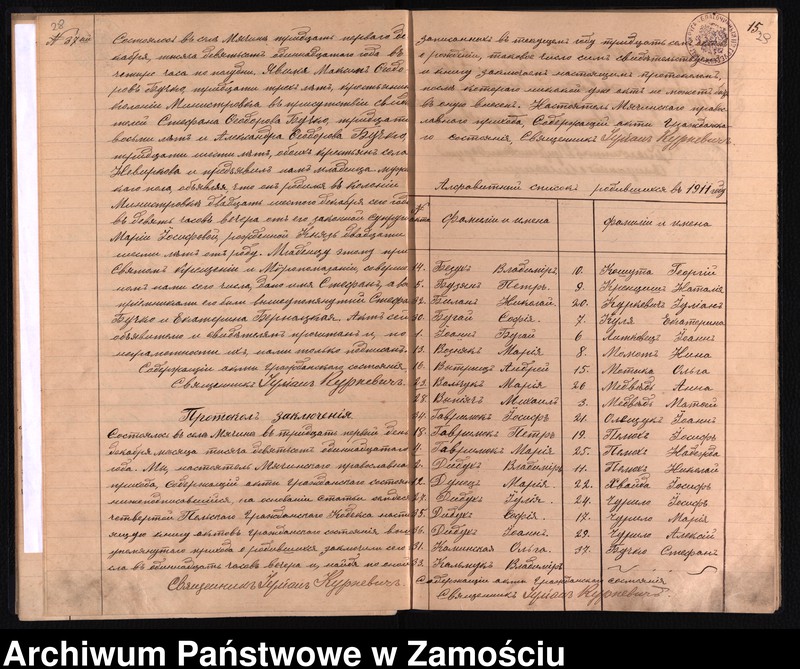 28
№ 37ой
Состоялось въ селѣ Мячина тридцать перваго де-
кабря, мѣсяца девятьсотъ одиннадцатаго года въ
четыре часа по полудни. Явился Максимъ Ѳеодо-
ровъ Бучко, тридцати трехъ лѣтъ, крестьянинъ
колоніи Милистровка въ присутствіи свидѣ-
телей Стефана Ѳеодорова Бучко, тридцати
восьми лѣтъ и Александра Ѳеодорова Бучко,
тридцати шести лѣтъ, обоихъ крестьянъ села
и предъявилъ намъ младенца муж-
ского пола, объявляя, что онъ родился въ колоніи
Милистровкѣ двадцать шестого декабря сего года
въ девять часовъ вечера отъ его законной супруги
Маріи Іосифовой, рожденной Князь двадцати
шести лѣтъ отъ роду. Младенцу этому при
Святомъ Крещеніи и Мѵропомазаніи, совершен-
номъ нами сего числа, дано имя Стефанъ, а вос-
пріемниками его были вышеупомянутый Стефанъ
Бучко и Екатерина Актъ сей
объявителю и свидѣтелямъ прочитанъ и, по
неграмотности ихъ, нами только подписанъ.
Содержащій акты гражданскаго состоянія
Священникъ Іуліанъ Куркевичъ.
Протоколъ заключенія
Состоялся въ селѣ Мячина въ тридцать первый день
декабря мѣсяца тысяча девятьсотъ одиннадцатаго
года. Мы, настоятель Мячинскаго православнаго
прихода, Содержащій акты Гражданскаго состоянія
нижеподписавшійся, на основаніи статьи
четвертой Польскаго Гражданскаго Кодекса наст-
ящую книгу актовъ Гражданскаго состоянія
упомянутаго прихода о родившихся, заключили сего чи-
сла въ одиннадцать часовъ вечера и, найдя по оной
Священникъ Іуліанъ Куркевичъ.
15
28
записанныхъ въ текущемъ году тридцать семь актовъ
о рожденіи, таковое число симъ свидѣтельствуемъ
и книгу заключаемъ настоящимъ протоколомъ,
послѣ котораго никакой уже актъ не можетъ быть
въ оную внесенъ. Настоятель Мячинскаго право-
славнаго прихода, Содержащій акты Гражданска-
го состоянія, Священникъ Іуліанъ Куркевичъ.
Алфавитный списокъ родившихся въ 1911 году
№ акта Фамиліи и имена Фамиліи и имена
14. Бецукъ Владиміръ 10. Кошута Георгій
5. Петръ. 9. Наталія
32. Николай. 20. Куркевичъ Іуліанъ
30. Бугай Софія. 7. Куля Екатерина
1. Іоаннъ Бугай 6 Іоаннъ
13. Вознякъ Марія 8. Молотъ Нина
16. Андрей 15. Мотыка Ольга
23. Вальчукъ Марія 26 Медвѣдь Анна
28. Михаилъ 3. Медвѣдь Матѳій
34. Гаврилюкъ Іосифъ 21. Іоаннъ
18. Гаврилюкъ Петръ 19. Іосифъ
4. Гаврилюкъ Марія 25. Надежда
2. Дибукъ Владиміръ 11. Николай
12. Марія 22. Хвайка Іосифъ
27. Дибукъ Іулія. 24. Чурило Іосифъ
35. Дибукъ Софія. 17. Чурило Марія
36. Дибукъ Іоаннъ 29. Чурило Алексій
31. Каминская Ольга. 37. Бучко Стефанъ
33. Кальмукъ Владиміръ
Содержащій акты гражданскаго состоянія
Священникъ Іуліанъ Куркевичъ.
Archiwum Państwowe w Zamościu